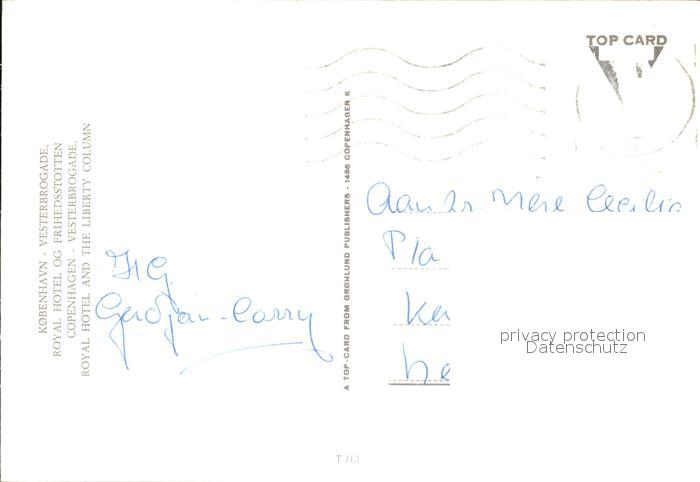 KØBENHAVN - VESTERBROGADE,
ROYAL HOTEL OG FRIHEDSSTOTTEN
COPENHAGEN - VESTERBROGADE,
ROYAL HOTEL AND THE LIBERTY COLUMN
HG
Gerdjan-Carry
A TOP-CARD FROM GRØHLUND PUBLISHERS - 1456 COPENHAGEN K
TOP CARD
Aan Zr Mère Cecilia
Pla
Ke
he
privacy protection
Datenschutz
T 113